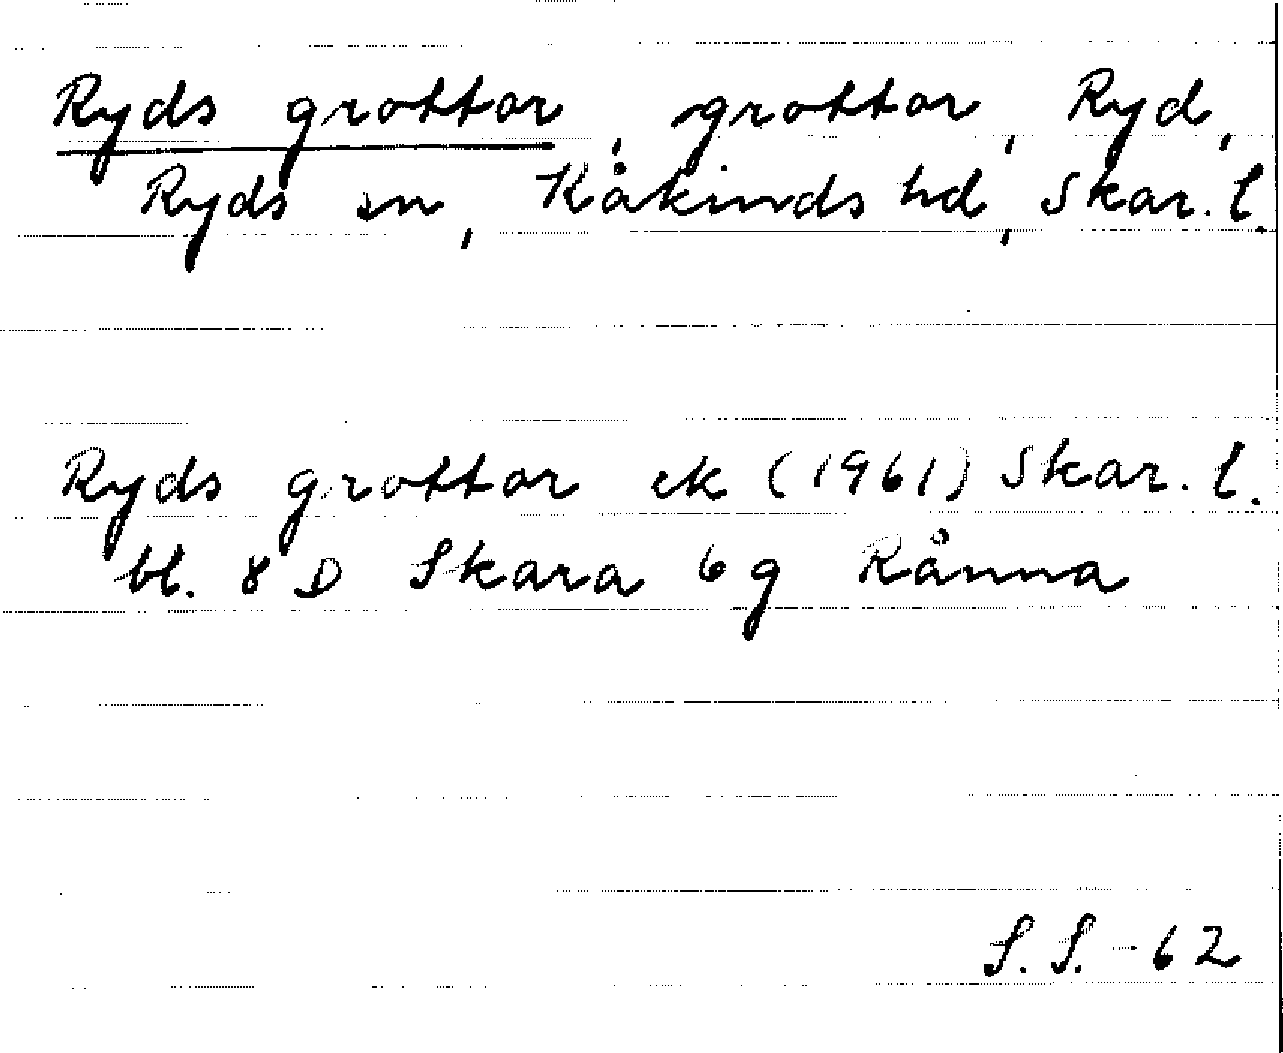 Ryds grottor, grottor, Ryd,
Ryds sn, Kåkinds hd, Skar. l.
Ryds grottor ek (1961) Skar. l.
bl. 8 D Skara 6g Rånna
S. S. - 62